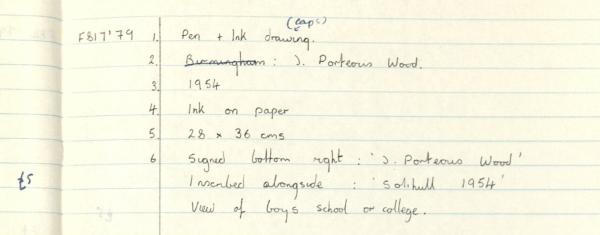 (caps)
F817'79 1. Pen + Ink drawing.
2. Birmingham : J. Porteous Wood.
3. 1954
4. Ink on paper
5. 28 x 36 cms
6 Signed bottom right : 'J. Porteous Wood'
£5 Inscribed alongside : 'Solihull 1954'
View of boys school or college.